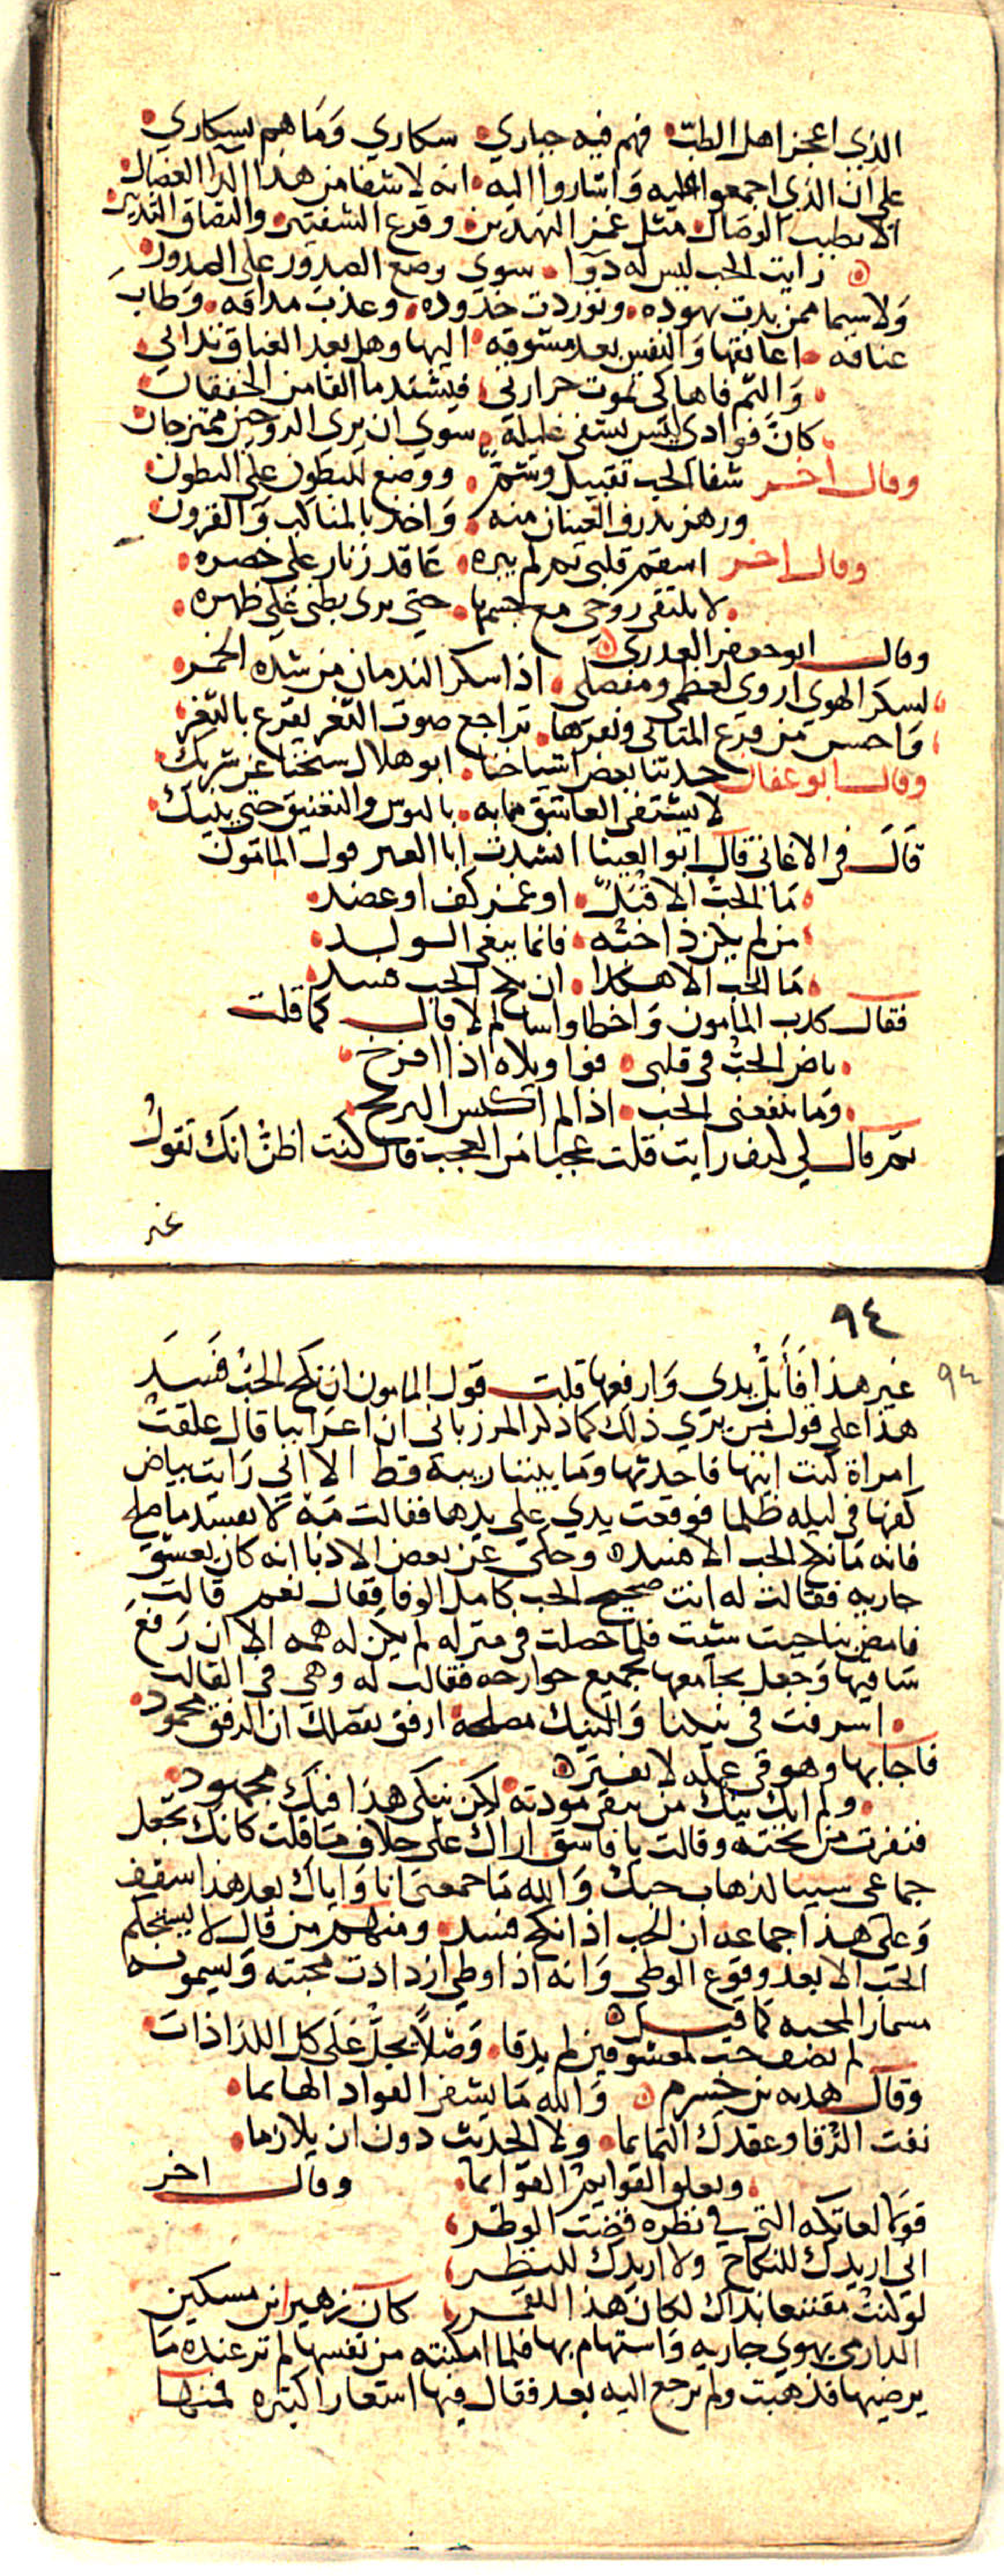 الذي اعجز اهل الطب فهم فيه حياري سكاري وما هم بسكاري
علي ان الذي اجمعوا عليه واشاروا اليه انه لا شفا من هذا الدا العضال
الا بطبيب الوصال مثل غمز النهدين وقرع الشفتين والتصاق الثديين
رايت الحب ليس له دوا سوي وضع الصدور علي الصدور
ولا سيما ممن بدت نهوده وتوردت خدوده وعذب مذاقه وطاب
عناقه اعانقها والنفس بعد مشوقه اليها وهل بعد العناق تداني
والثم فاها كي تموت حرارتي فيشتد ما القا من الخفقان
كان فوادي ليس يشفي غليله سوي ان يري الروحين ممتزجان
وقال اخر شفا الحب تقبيل وشم ووضع للبطون علي البطون
ورهز تذرف العينان منه واخذ بالمناكب والقرون
وقال اخر اسقم قلبي ثم لم يبره عاقد زنار علي خصره
لا يلتقي روحي مع جسمها حتي يري بطني علي ظهره
وقال ابو جعفر العدري
لسكر الهوي اروي لعظمي ومفصلي اذا سكر الندمان من شده الخمر
واحسن من قرع المثاني ونقرها تراجع صوت الثغر يقرع بالثغر
وقال ابو عفان حدثنا بعض اشياخنا ابو هلال شيخنا عن شريك
لا يشتفي العاشق مما به بالبوس والتعنيق حتي ينيك
قال في الاغاني قال ابو العينا انشدت ابا العبر قول المامون
ما الحب الا قبل او غمز كف او عضد
من لم يكن ذا حبه فانما يبغي الولد
ما الحب الا هكذا ان نكح الحب فسد
فقال كذب المامون واخطا واسا لم لا قال كما قلت
باض الحب في قلبي فوا ويلاه اذا افرخ
وما ينفعني الحب اذا لم اكنس البربخ
ثم قال لي كيف رايت قلت عجبا من العجب قال كنت اظن انك تقول
غير
٩٤
٩٤
غير هذا فابل يدي وارفعها قلت قول المامون ان نكح الحب فسد
هذا علي قول من يري ذلك كما ذكر المرزباني ان اعرابيا قال علقت
امراة كنت اتيها فاحدثها وما بيننا ريبة قط الا اني رايت بياض
كفها في ليله ظلما فوقعت يدي علي يدها فقالت مه لا تفسد ما صلح
فانه ما نكح الحب الا فسد وحكي عن بعض الادبا انه كان يعشق
جاريه فقالت له انت صحيح الحب كامل الوفا فقال نعم قالت
فامض بنا حيث شيت فلما حصلت في منزله لم يكن له همه الا ان رفع
ساقيها وجعل يجامعها بجميع جوارحه فقالت له وهي في القالت
اسرفت في نيكنا والنيك مصلحة ارفق بفضلك ان الرفق محمود
فاجابها وهو في عمله لا يفتر
ولم انك نيك من يبقي مودته لكن نيكي هذا فيك مجهود
فنفرت من تحته وقالت يا فاسق اراك علي خلاف ما قلت كانك تجعل
جماعي سببا لذهاب حبك والله ما جمعني انا واياك بعد هذا سقف
وعلي هذا جماعه ان الحب اذا نكح فسد ومنهم من قال لا يستحكم
الحب الا بعد وقوع الوطي وانه اذا وطي ازدادت محبته ويسمونه
مسمار المحبه كما قيل
لم يصف حب لمعشوقين لم يذقا وصلا يجل علي كل اللذاذات
وقال هدبه بن خشرم والله ما يشفي الفواد الهايما
نفث الرقا وعقدك التمايما ولا الحديث دون ان يلازما
وتعلو القوايم القوايما وقال اخر
قولا لعاتكه التي في نظره قضت الوطر
اني اريدك للنكاح ولا اريدك للنظر
لو كنت مقتنعا بذاك لكان هذا القمر كان زهير بن مسكين
الدارمي يهوي جاريه واستهام بها فلما امكنته من نفسها لم تر عنده ما
يرضيها فذهبت ولم ترجع اليه بعد فقال فيها اشعارا كثيره فمنها